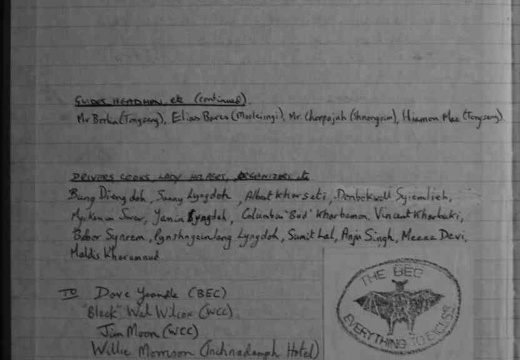 GUIDES HEADMEN etc (continued)
Mr Borba (Tongseng), Elias Bares (Moolesngi), Mr. Cherpajah (Shnongrim), Hermon Mae (Tongseng)
DRIVERS COOKS, LADY HELPERS, ORGANIZERS etc
Bung Diengdoh, Sonny Lyngdoh, Albert Kharsati, Denbokwell Syiemlieh,
Swer, Yanin Lyngdoh, Columba 'Bad' Kharbamon, Vincent Kharbuki,
Babor Synrem, Lyngdoh, Sumit Lal, Anju Singh, Meena Devi,
Maldis
TO Dave Yeandle (BEC)
'Black' Wal Wilcox (WCC)
Jim Moon (WCC)
Willie Morrison (Inchnadamph Hotel)
THE BEC
EVERYTHING TO EXCESS